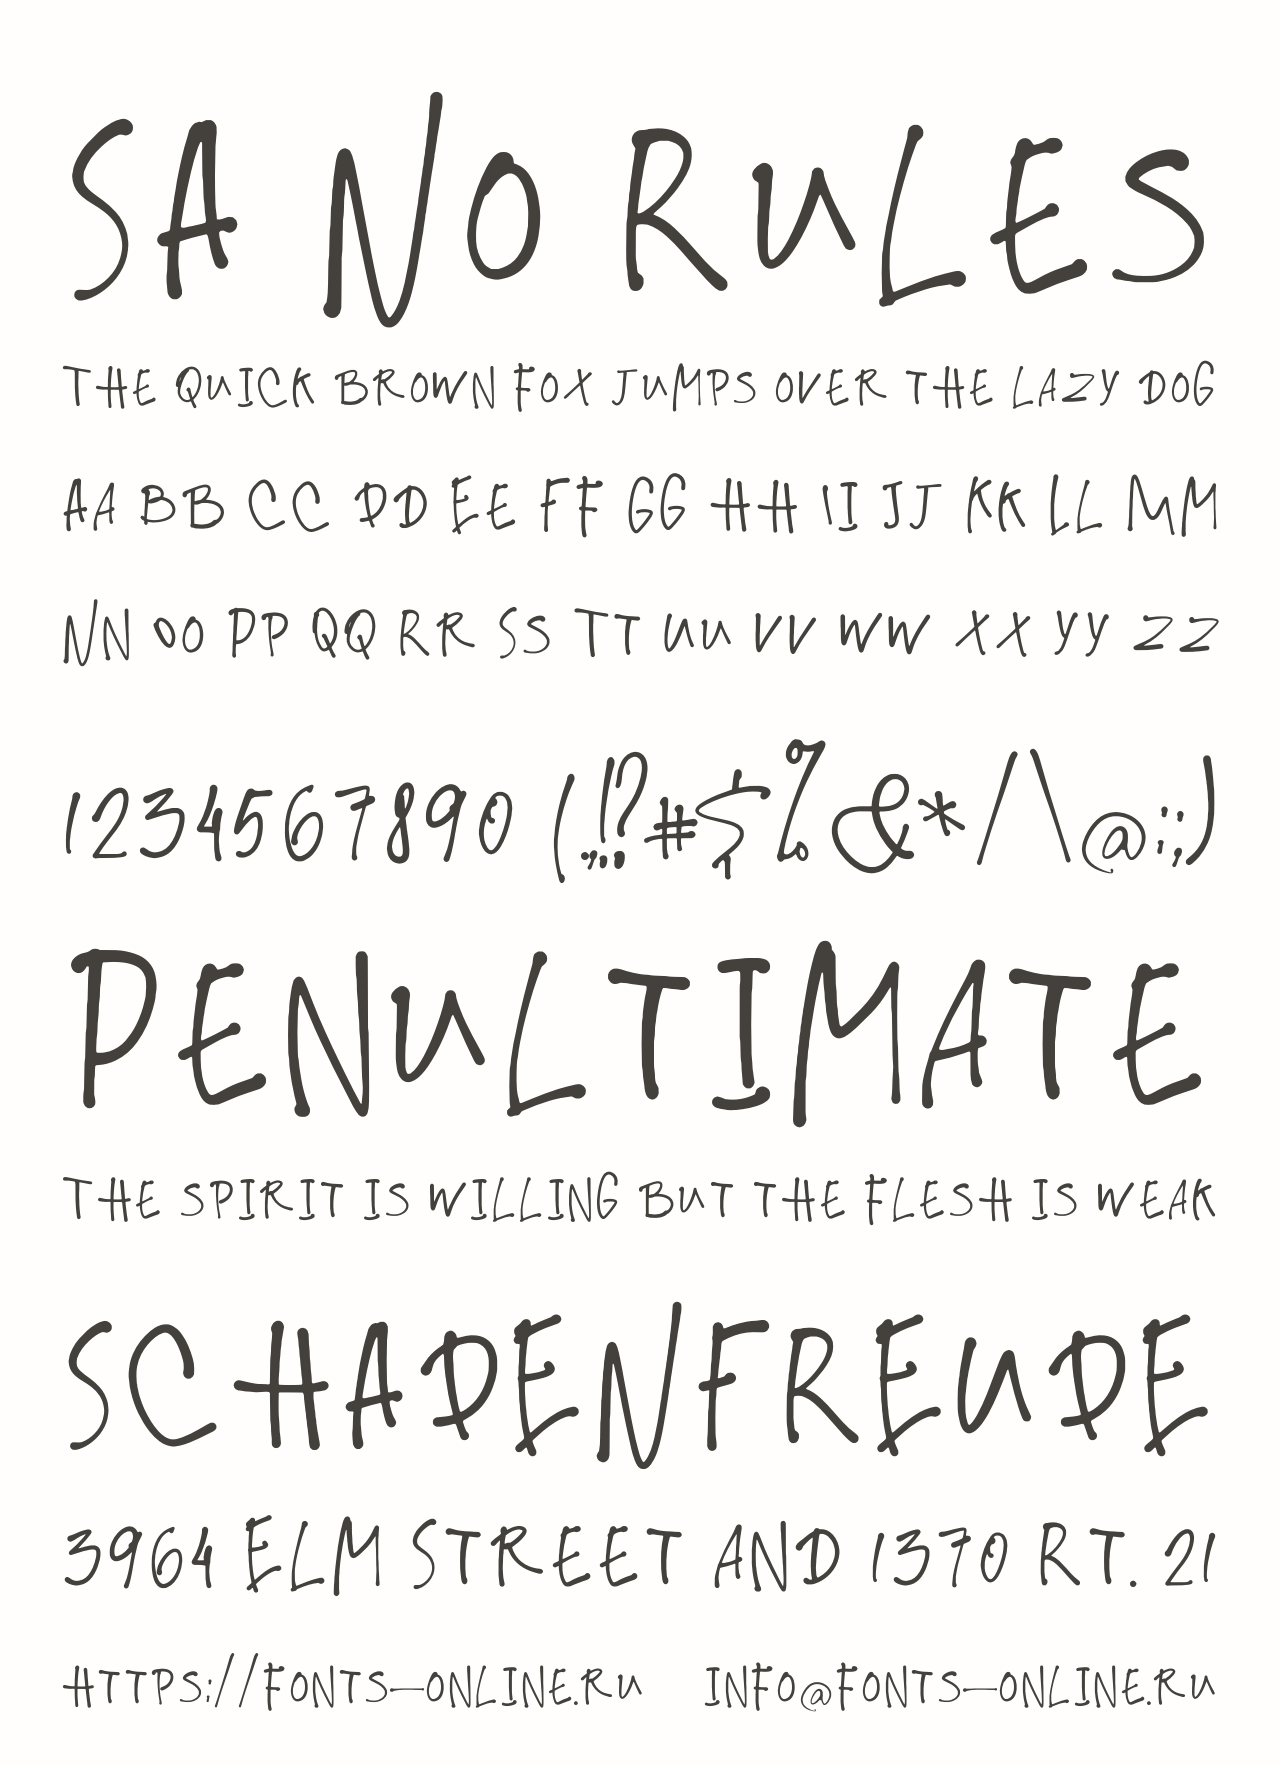 SA NO RULES
THE QUICK BROWN FOX JUMPS OVER THE LAZY DOG
AA BB CC DD EE FF GG HH II JJ KK LL MM
NN OO PP QQ RR SS TT UU VV WW XX YY ZZ
1234567890 (.,!:?#$%&*/\@:;)
PENULTIMATE
THE SPIRIT IS WILLING BUT THE FLESH IS WEAK
SCHADENFREUDE
3964 ELM STREET AND 1370 RT. 21
HTTPS://FONTS-ONLINE.RU INFO@FONTS-ONLINE.RU